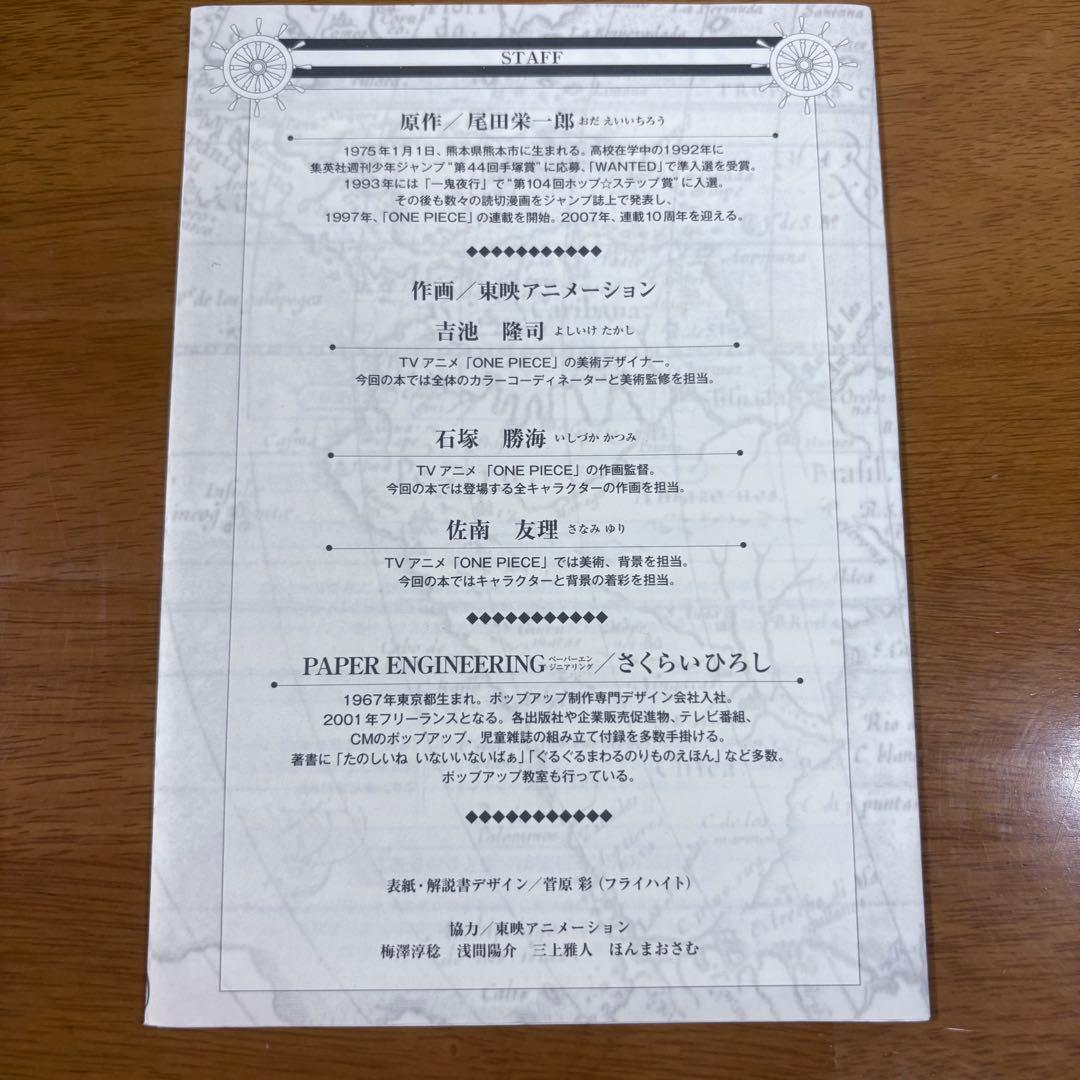 STAFF
原作／尾田栄一郎 おだ えいいちろう
1975年1月1日、熊本県熊本市に生まれる。高校在学中の1992年に
集英社週刊少年ジャンプ“第44回手塚賞”に応募、「WANTED」で準入選を受賞。
1993年には「一鬼夜行」で“第104回ホップ☆ステップ賞”に入選。
その後も数々の読切漫画をジャンプ誌上で発表し、
1997年、「ONE PIECE」の連載を開始。2007年、連載10周年を迎える。
作画／東映アニメーション
吉池　隆司 よしいけ たかし
TVアニメ「ONE PIECE」の美術デザイナー。
今回の本では全体のカラーコーディネーターと美術監修を担当。
石塚　勝海 いしづか かつみ
TVアニメ「ONE PIECE」の作画監督。
今回の本では登場する全キャラクターの作画を担当。
佐南　友理 さなみ ゆり
TVアニメ「ONE PIECE」では美術、背景を担当。
今回の本ではキャラクターと背景の着彩を担当。
PAPER ENGINEERING ペーパーエンジニアリング／さくらいひろし
1967年東京都生まれ。ポップアップ制作専門デザイン会社入社。
2001年フリーランスとなる。各出版社や企業販売促進物、テレビ番組、
CMのポップアップ、児童雑誌の組み立て付録を多数手掛ける。
著書に「たのしいね いないいないばぁ」「ぐるぐるまわるのりものえほん」など多数。
ポップアップ教室も行っている。
表紙・解説書デザイン／菅原 彩（フライハイト）
協力／東映アニメーション
梅澤淳稔　浅間陽介　三上雅人　ほんまおさむ